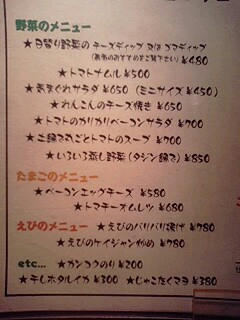 野菜のメニュー
★日替り野菜のチーズディップ 又は ゴマディップ
¥480
★トマトナムル ¥500
★気まぐれサラダ ¥650 (ミニサイズ ¥450)
★れんこんのチーズ焼き ¥650
★トマトのカリカリベーコンサラダ ¥700
★土鍋で丸ごとトマトのスープ ¥700
★いろいろ蒸し野菜 (タジン鍋で) ¥850
たまごのメニュー
★ベーコンエッグチーズ ¥580
★トマチーオムレツ ¥680
えびのメニュー ★えびのパリパリ揚げ ¥780
★えびのケイジャン炒め ¥780
etc... ★ガンコつのり ¥200
★干しホタルイカ ¥300 ★じゃこたくマヨ ¥380